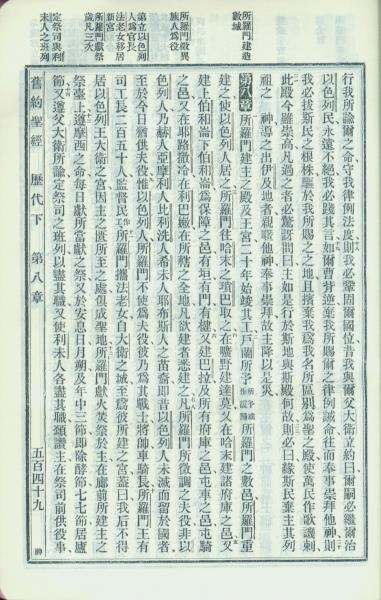 行我所諭爾之命守我律例法度則我必鞏固爾國位昔我與爾父大衛立約曰爾嗣必繼爾治
以色列民永遠不絕我必踐其言如爾曹背逆棄我所賜爾之律例誡命往而奉事崇拜他神則
我必拔斯民之根株驅於我所賜之之地且擯棄我爲我名所區別爲聖之殿使萬民作歌譏刺
此殿今雖崇高凡過之者必驚訝問曰主如是行於斯地與斯殿何故則必曰緣斯民棄主其列
祖之 神導之出伊及地者親暱他神奉事崇拜故主降以是災
所羅門建造
數城
第八章 所羅門建主之殿及王宮二十年始竣其工戶蘭所予所羅門之數邑所羅門重
建之使以色列人居之所羅門往哈末的瑣巴取之在曠野建達莫又在哈末建諸府庫之邑又
建上伯和崙下伯和崙爲保障之邑有垣有門有楗又建巴拉及所有府庫之邑屯車之邑屯騎
之邑又在耶路撒冷在利巴嫩在所轄之全地凡欲建者悉建之凡所羅門所徵調之夫役非以
所羅門徵異
族人爲役
色列人乃赫人亞摩利人比利洗人希未人耶布斯人之苗裔即昔以色列人未滅而留於國者
第立以色列
人爲官長
至於今日猶供夫役惟以色列人所羅門不使爲夫役彼乃爲其戰士將帥車騎長所羅門王有
法老女移居
新宮
司工長二百五十人監督民工所羅門攜法老女自大衛之城至爲彼所建之宮蓋曰我后不得
所羅門獻祭
歲凡三次
居以色列王大衛之宮因主之匱所至之處俱成聖地所羅門獻火焚祭於主在廊前所建主之
祭臺上遵摩西之命每日獻所當獻之祭又於安息日月朔及年中三節即除酵節七七節居廬
定祭司與利
未人之班列
節又遵父大衛所諭定祭司之班列以盡其職又使利未人各盡其職頌讚主在祭司前供役事
舊約聖經 歷代下 第八章 五百四十九